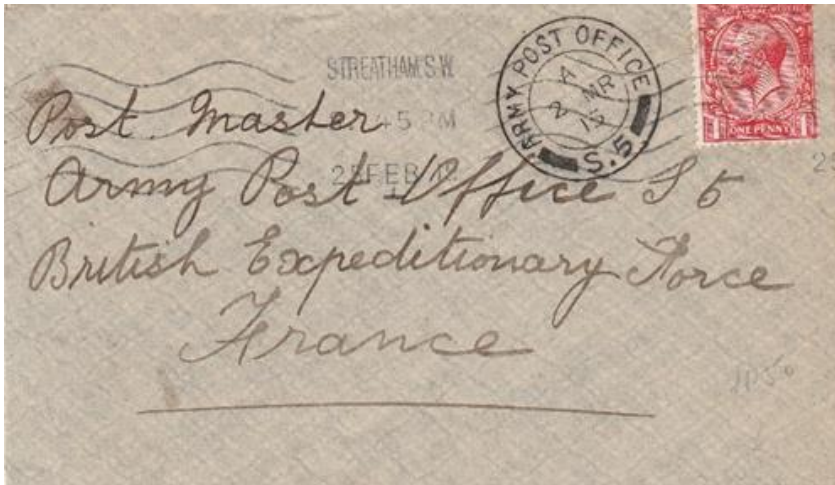 STREATHAM.S.W.
45 PM
FEB
ARMY POST OFFICE
A
2 MR
15
S.5.
ONE PENNY
Post Master
Army Post Office S 5
British Expeditionary Force
France